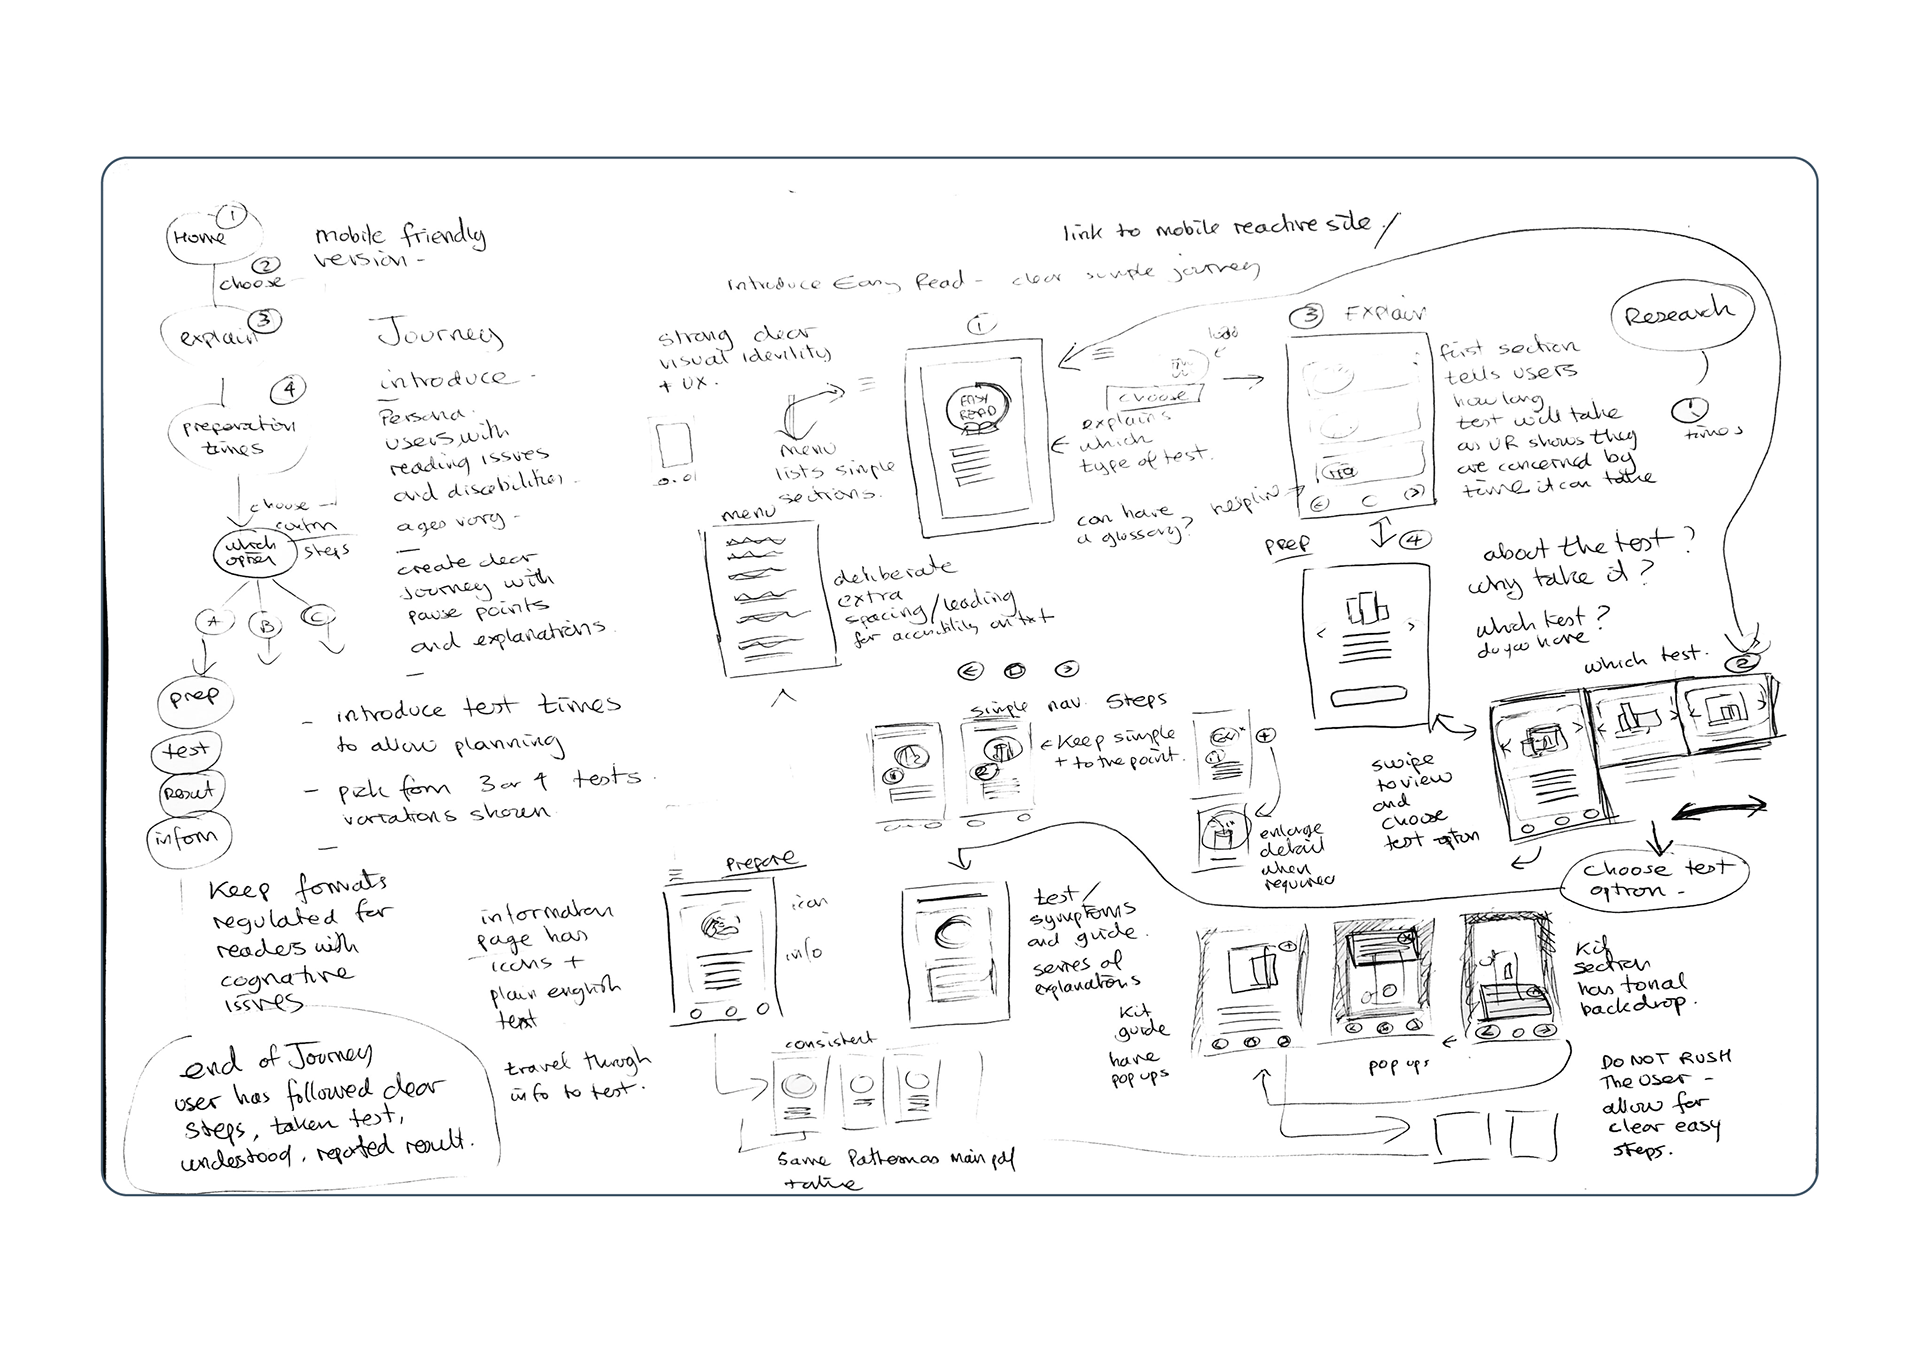 Home
1
2
choose
explain
3
4
preparation
times
choose
steps
which
option
A
B
C
prep
test
Result
inform
mobile friendly
version -
Journey
introduce -
Persona
users with
reading issues
and disabilities.
ages vary -
create clear
journey with
pause points
and explanations.
- introduce test times
to allow planning
- pick from 3 or 4 tests
variations shown.
Keep formats
regulated for
readers with
cognative
issues
end of Journey
user has followed clear
steps, taken test,
understood, reported result.
information
page has
icons +
plain english
text
travel through
info to test.
link to mobile reactive site /
introduce Easy Read - clear simple journey
strong clear
visual idenility
+ UX.
menu
lists simple
sections.
menu
deliberate
extra
spacing/leading
for accessibility on txt
1
EASY
READ
logo
choose
explains
which
type of test.
can have
a glossary?
3 EXPLAIN
first section
tells users
how long
test will take
as UR shows they
are concerned by
time it can take
Research
1
times
PREP
4
about the test?
why take it?
which test?
do you have
which test.
2
swipe
to view
and
choose
test option
choose test
option -
simple nav. Steps
Keep simple
+ to the point.
enlarge
detail
when
required
Prepare
icon
info
consistent
test/
symptoms
and guide.
series of
explanations
Kit
guide
have
pop ups
pop ups
Kit
section
has tonal
backdrop.
DO NOT RUSH
The user -
allow for
clear easy
steps.